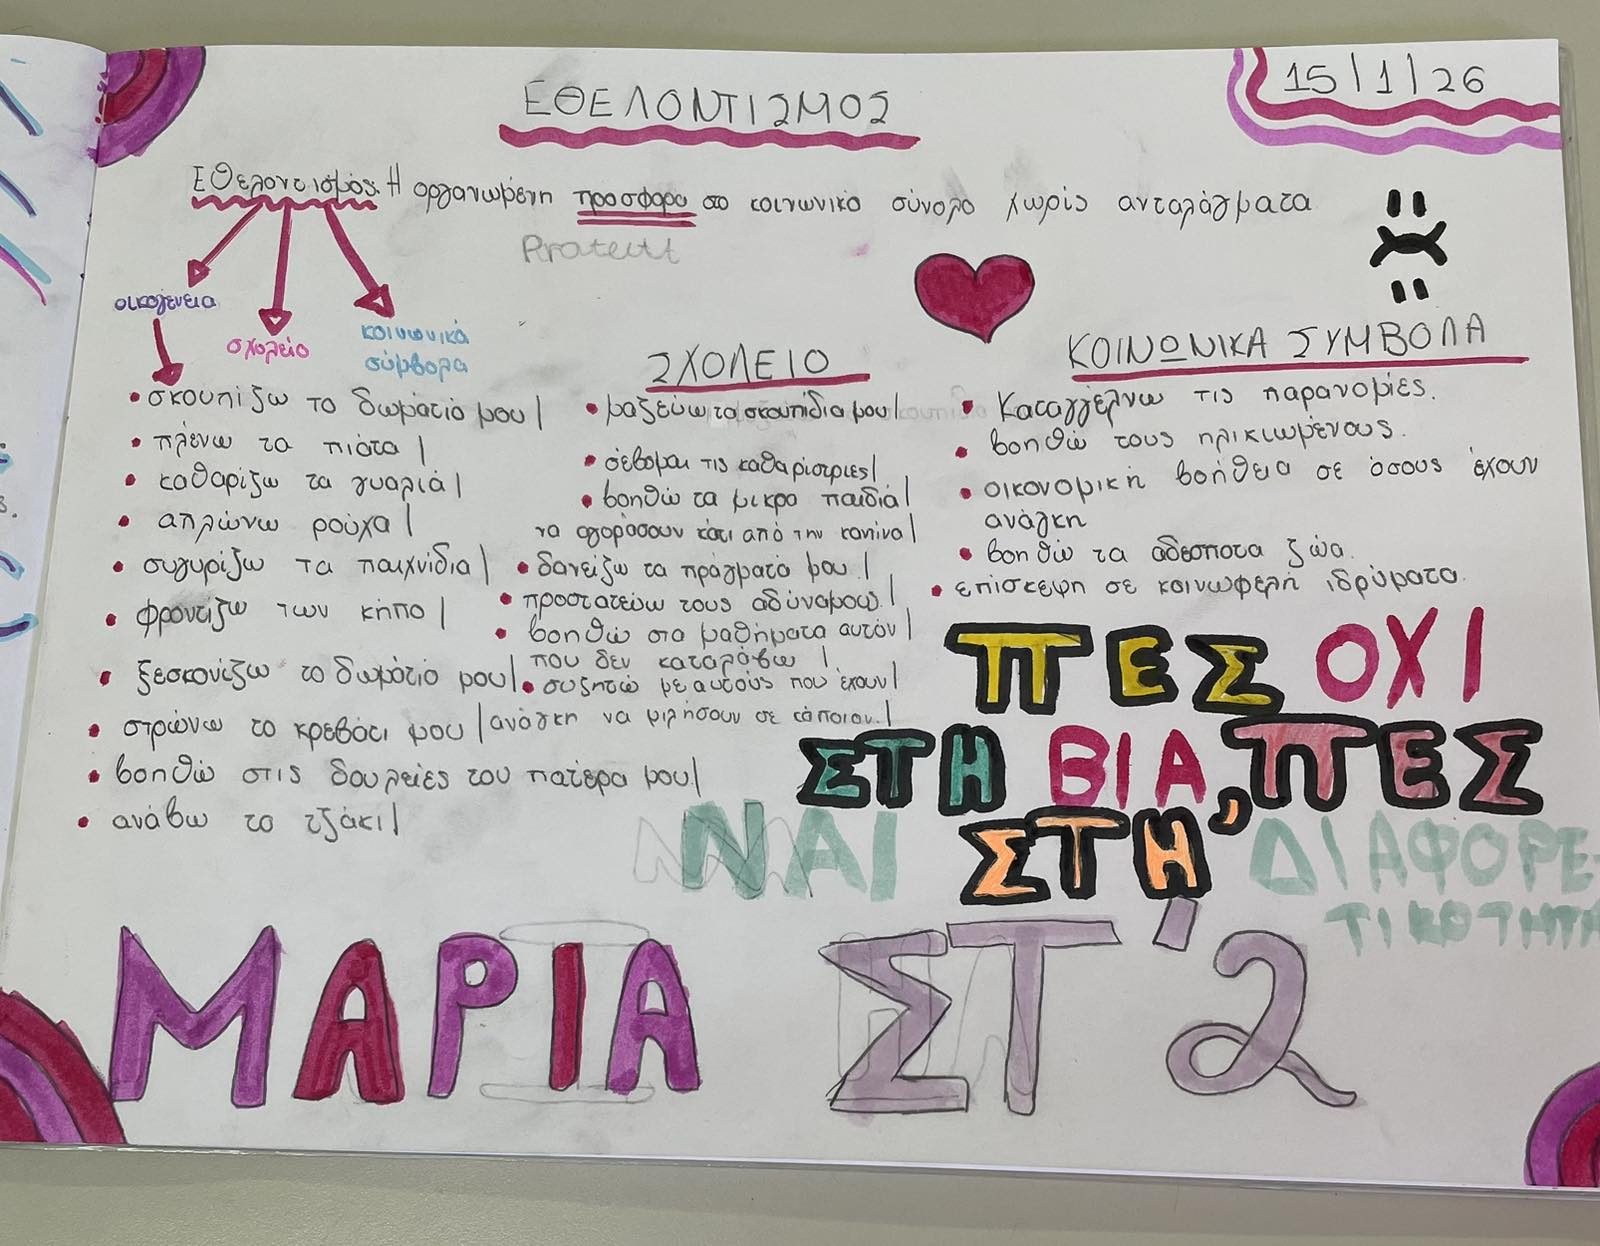 15/1/26
ΕΘΕΛΟΝΤΙΣΜΟΣ
Εθελοντισμός: Η οργανωμένη προσφορα στο κοινωνικό σύνολο χωρίς ανταλάγματα
οικογένεια
σχολείο
κοινωνικά
σύμβολα
• σκουπίζω το δωμάτιό μου|
• πλένω τα πιάτα |
• καθαρίζω τα γυαλιά|
• απλώνω ρούχα|
• συγυρίζω τα παιχνίδια|
• φροντίζω των κήπο|
• ξεσκονίζω το δωμάτιό μου|
• στρώνω το κρεβάτι μου|
• βοηθώ στις δουλείες του πατέρα μου|
• ανάβω το τζάκι|
ΣΧΟΛΕΙΟ
• μαζεύω τα σκουπίδια μου|
• σέβομαι τις καθαρίστριες|
• βοηθώ τα μικρα παιδιά|
να αγοράσουν κάτι από την καντίνα|
• δανείζω τα πράγματά μου.|
• προστατεύω τους αδύναμους.|
• βοηθώ στα μαθήματα αυτόν|
που δεν καταλάβω |
• συζητώ με αυτούς που έχουν|
ανάγκη να μιλήσουν σε κάποιον.|
ΚΟΙΝΩΝΙΚΑ ΣΥΜΒΟΛΑ
• Καταγγέλνω τις παρανομίες.
• βοηθώ τους ηλικιωμένους.
• οικονομική βοήθεια σε όσους έχουν
ανάγκη
• βοηθώ τα αδέσποτα ζώα.
• επίσκεψη σε κοινωφελή ιδρύματα.
ΠΕΣ ΟΧΙ
ΣΤΗ ΒΙΑ, ΠΕΣ
ΝΑΙ ΣΤΗ ΔΙΑΦΟΡΕ-
ΤΙΚΟΤΗΤΑ
ΜΑΡΙΑ ΣΤ'2